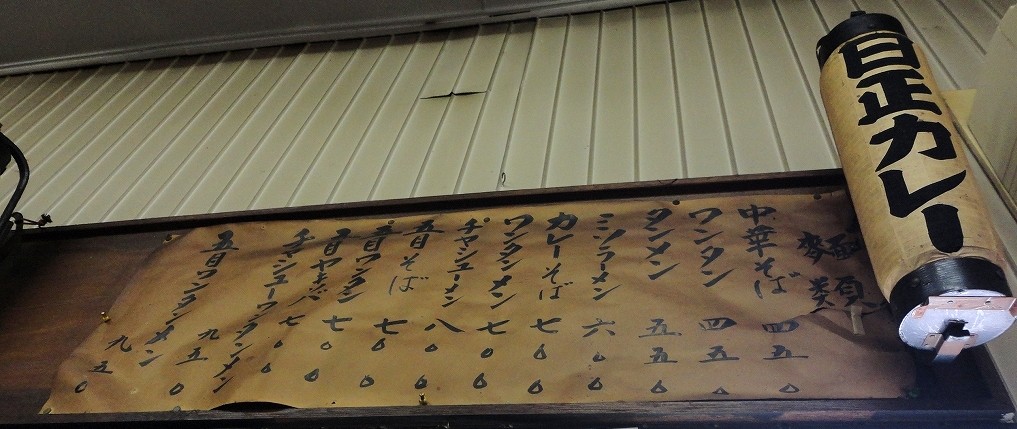 日正カレー
麵類
中華そば 四五0
ワンタン 四五0
タンメン 五五0
ミソラーメン 六00
カレーそば 七00
ワンタンメン 七00
チャシューメン 八00
五目そば 七00
五目ワンタン 七00
五目ヤキソバ 七00
チャシューワンタンメン 九五0
五目ワンタンメン 九五0